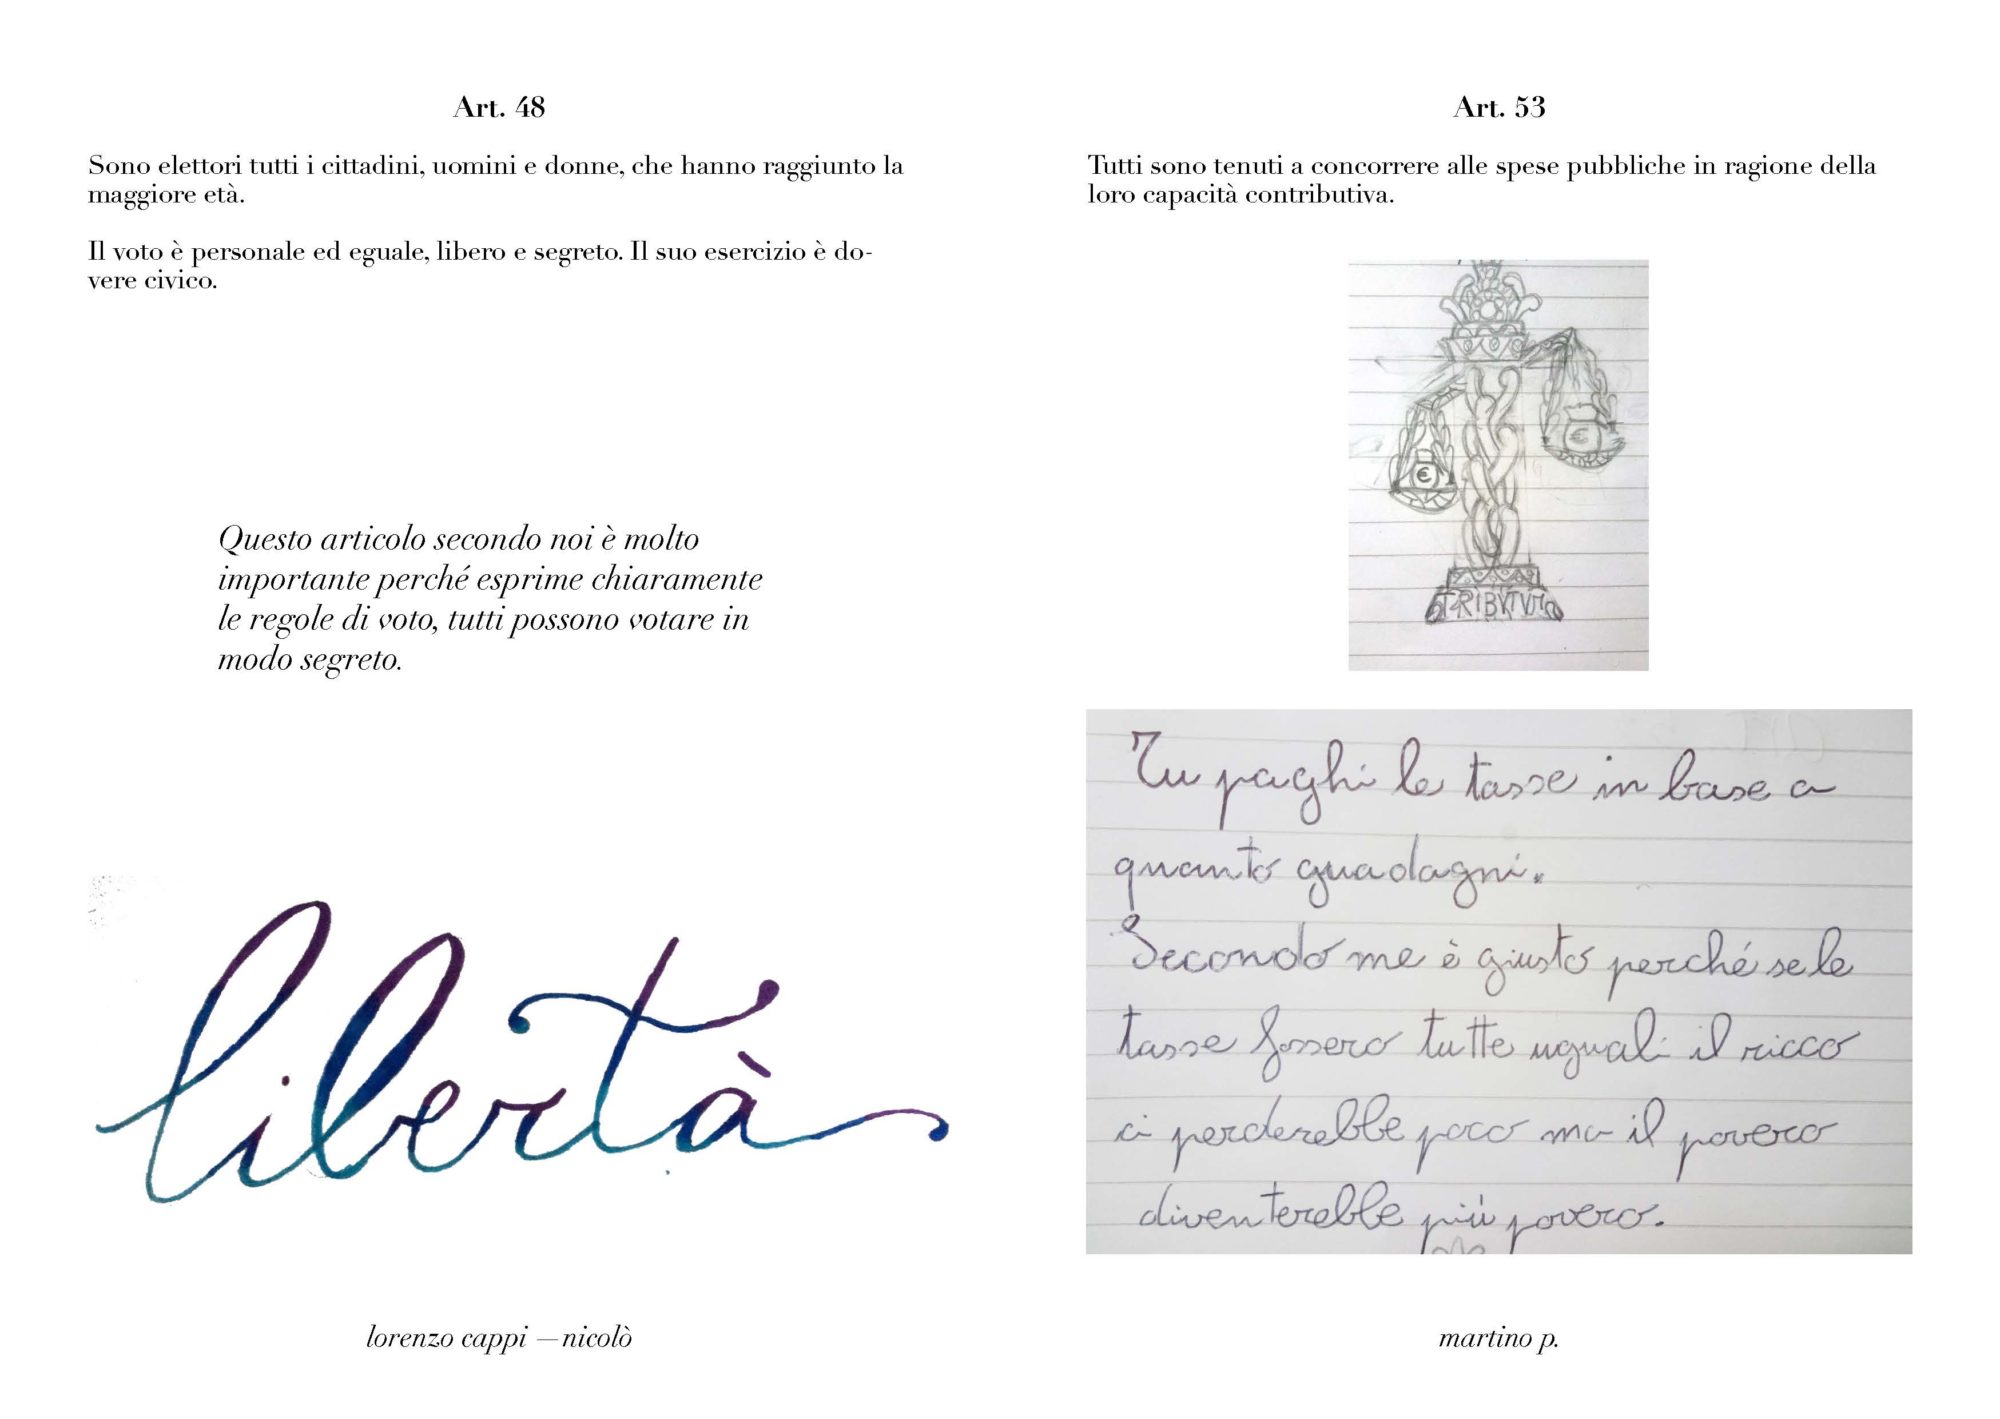 Art. 48
Sono elettori tutti i cittadini, uomini e donne, che hanno raggiunto la
maggiore età.
Il voto è personale ed eguale, libero e segreto. Il suo esercizio è do-
vere civico.
Questo articolo secondo noi è molto
importante perché esprime chiaramente
le regole di voto, tutti possono votare in
modo segreto.
libertà
lorenzo cappi — nicolò
Art. 53
Tutti sono tenuti a concorrere alle spese pubbliche in ragione della
loro capacità contributiva.
€
€
Tu paghi le tasse in base a
quanto guadagni.
Secondo me è giusto perché se le
tasse fossero tutte uguali il ricco
ci perderebbe poco ma il povero
diventerebbe più povero.
martino p.